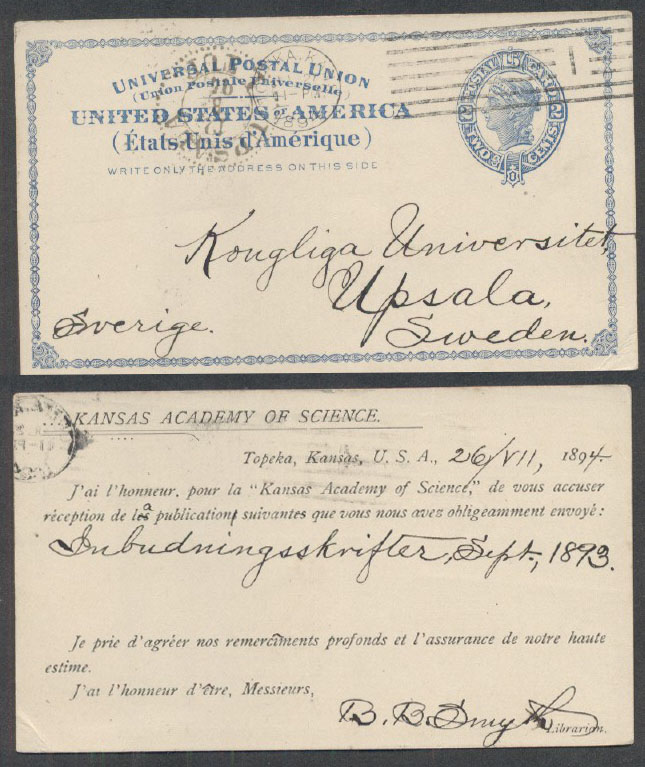 UNIVERSAL POSTAL UNION
(Union Postale Universelle)
UNITED STATES OF AMERICA
(États-Unis d'Amérique)
WRITE ONLY THE ADDRESS ON THIS SIDE
POSTAL CARD
2 TWO CENTS 2
1
Kongliga Universitet,
Upsala,
Sverige. Sweden.
KANSAS ACADEMY OF SCIENCE.
Topeka, Kansas, U. S. A., 26/VII, 1894.
J'ai l'honneur, pour la "Kansas Academy of Science," de vous accuser
réception de la publication suivantes que vous nous avez obligeamment envoyé:
Inbudningsskrifter, Sept., 1893.
Je prie d'agréer nos remercîments profonds et l'assurance de notre haute
estime.
J'ai l'honneur d'être, Messieurs,
B. B. Smyth
Librarian.